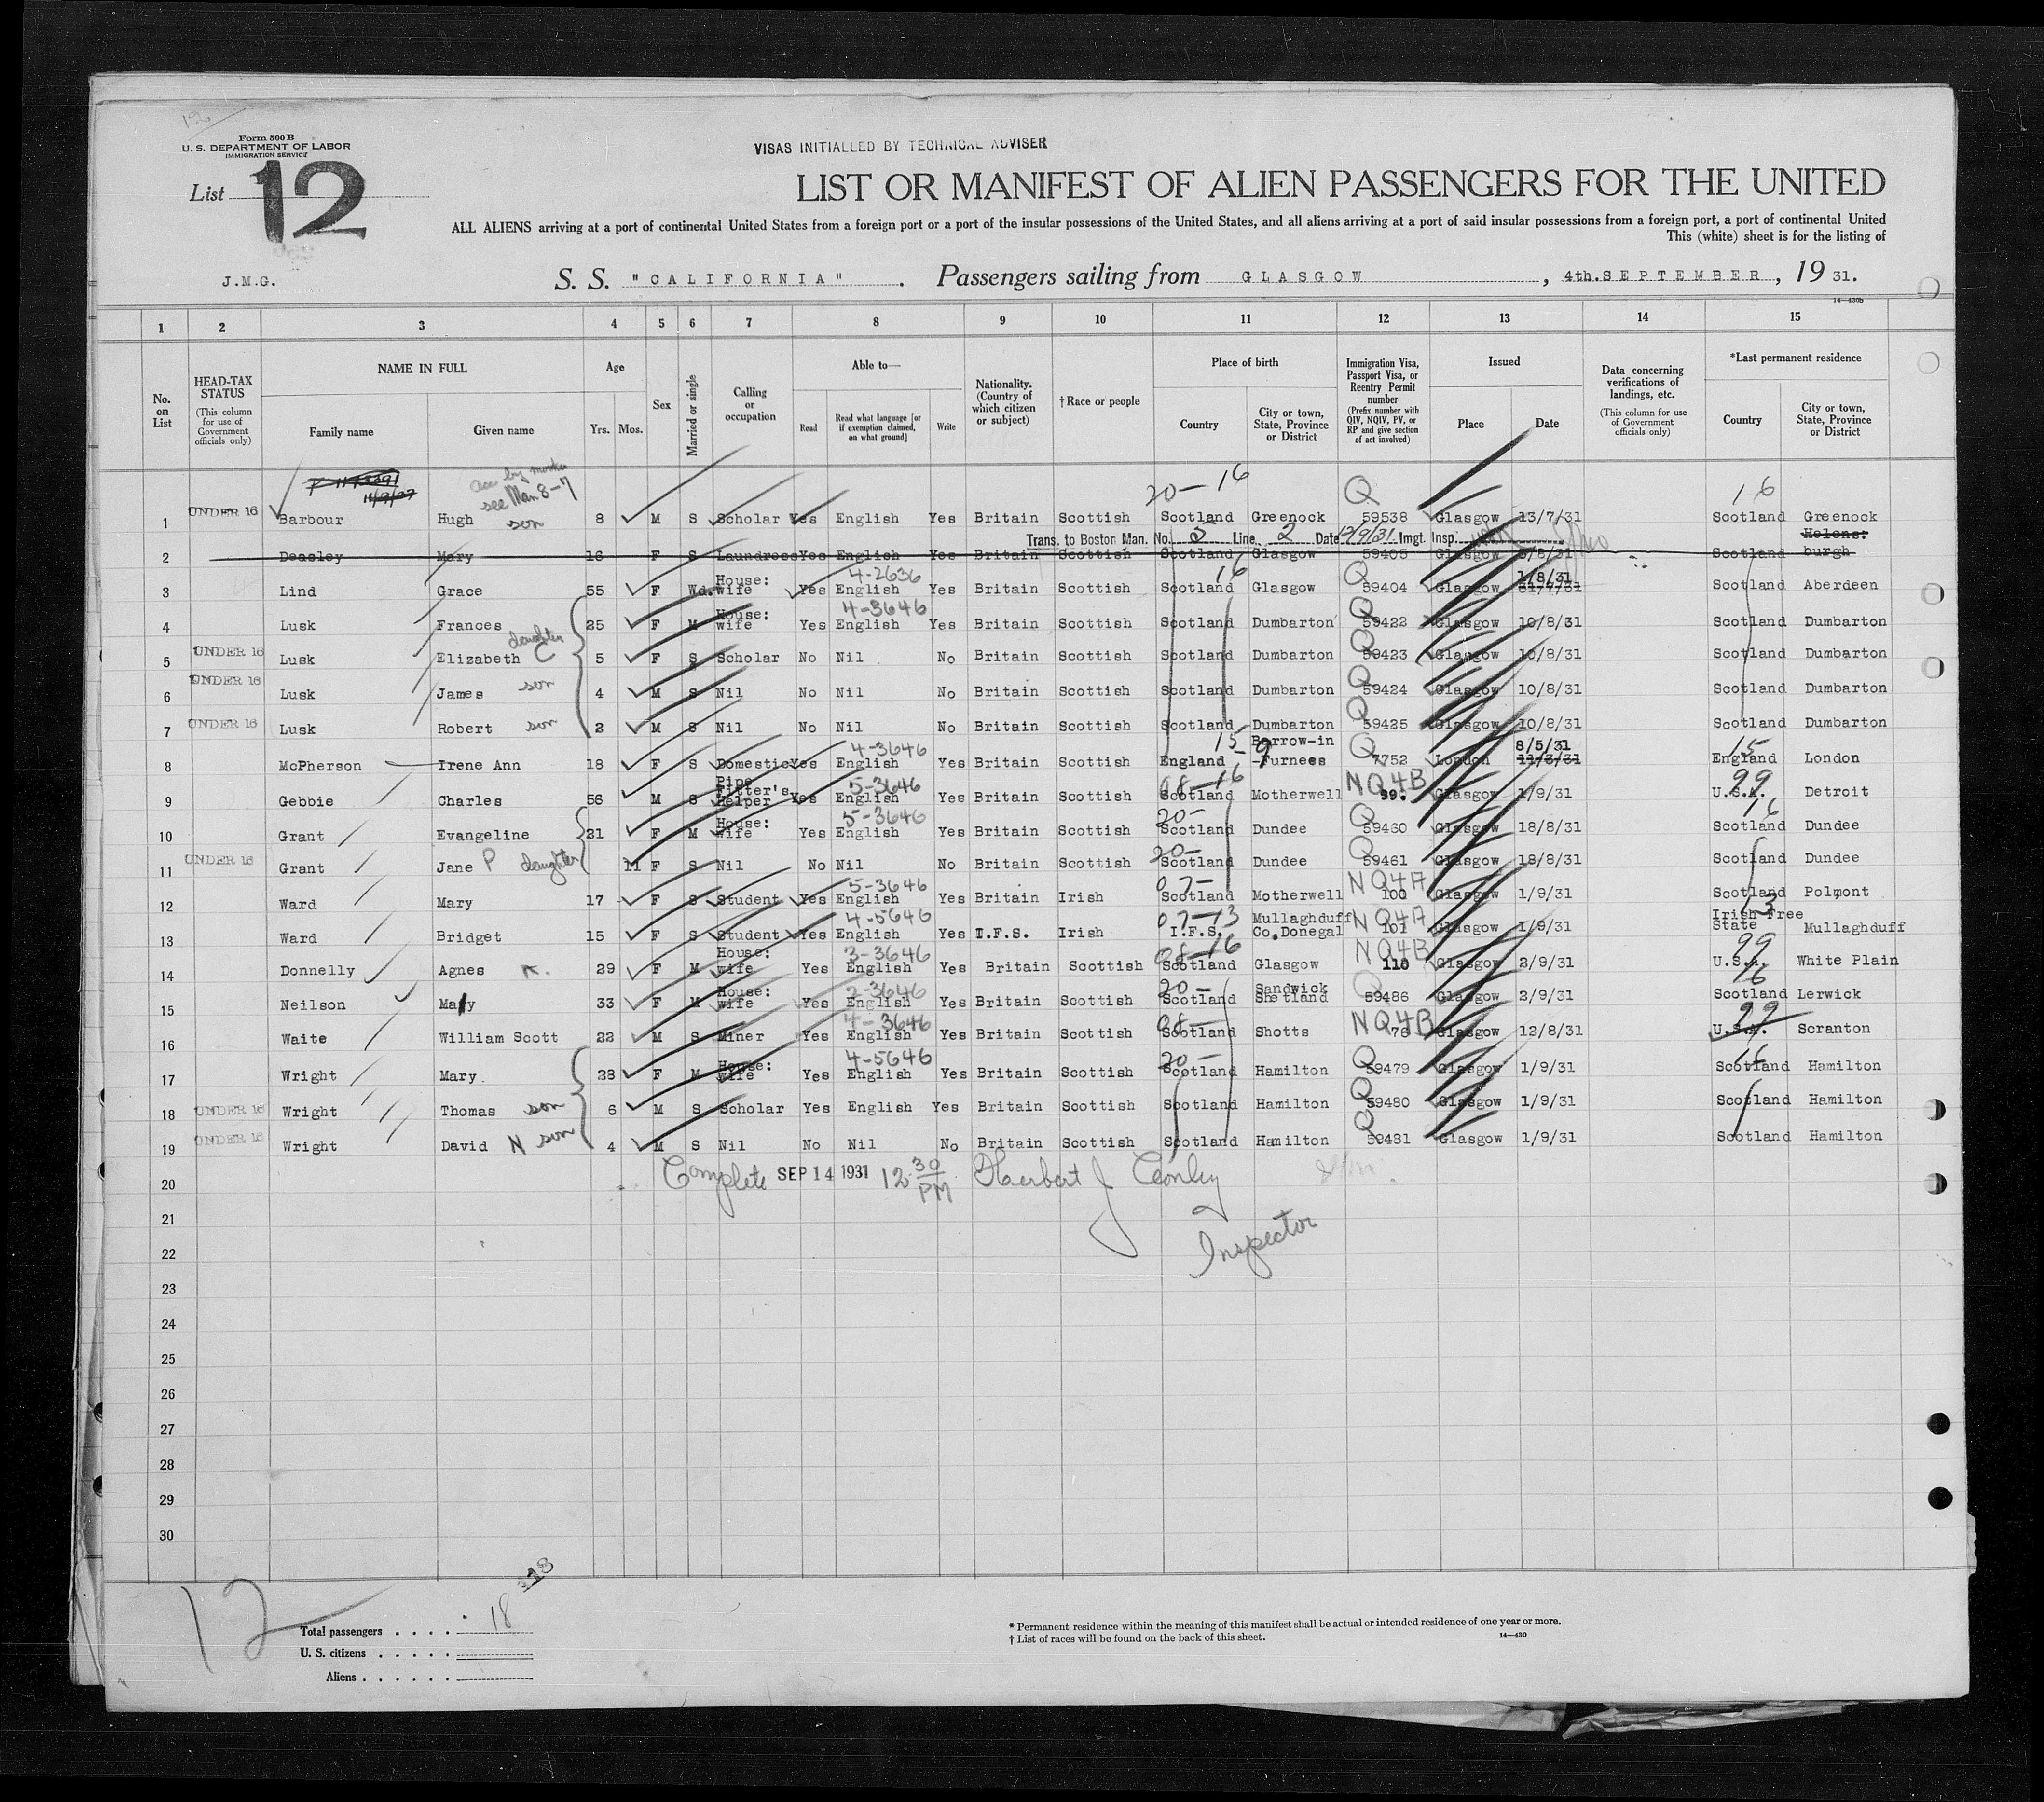 Form 500 B
U. S. DEPARTMENT OF LABOR
IMMIGRATION SERVICE
VISAS INITIALLED BY TECHNICAL ADVISER
List 12
LIST OR MANIFEST OF ALIEN PASSENGERS FOR THE UNITED
ALL ALIENS arriving at a port of continental United States from a foreign port or a port of the insular possessions of the United States, and all aliens arriving at a port of said insular possessions from a foreign port, a port of continental United
This (white) sheet is for the listing of
J.M.G. S. S. "CALIFORNIA". Passengers sailing from GLASGOW, 4th. SEPTEMBER, 1931.
14—430b
1 2 3 4 5 6 7 8 9 10 11 12 13 14 15
No. on List
HEAD-TAX STATUS (This column for use of Government officials only)
NAME IN FULL Family name Given name
Age Yrs. Mos.
Sex
Married or single
Calling or occupation
Able to— Read Read what language [or if exemption claimed, on what ground] Write
Nationality. (Country of which citizen or subject)
†Race or people
Place of birth Country City or town, State, Province or District
Immigration Visa, Passport Visa, or Reentry Permit number (Prefix number with QIV, NQIV, PV, or RP and give section of act involved)
Issued Place Date
Data concerning verifications of landings, etc. (This column for use of Government officials only)
*Last permanent residence Country City or town, State, Province or District
see Man 8-7 20-16 Q 16
1 UNDER 16 Barbour Hugh son 8 M S Scholar Yes English Yes Britain Scottish Scotland Greenock 59538 Glasgow 13/7/31 Scotland Greenock
Trans. to Boston Man. No. 5 Line 2 Date 12/9/31 Imgt. Insp.
2 Deasley Mary 16 F S Laundress Yes English Yes Britain Scottish Scotland Glasgow 59405 Glasgow 8/8/31 Scotland Helens: burgh
3 Lind Grace 55 F Wd. House: wife Yes 4-2636 English Yes Britain Scottish 16 Scotland Glasgow Q 59404 Glasgow 1/8/31 31/7/31 Scotland Aberdeen
4 Lusk Frances 25 F M House: wife Yes 4-3646 English Yes Britain Scottish Scotland Dumbarton Q 59422 Glasgow 10/8/31 Scotland Dumbarton
5 UNDER 16 Lusk Elizabeth C daughter 5 F S Scholar No Nil No Britain Scottish Scotland Dumbarton Q 59423 Glasgow 10/8/31 Scotland Dumbarton
6 UNDER 16 Lusk James son 4 M S Nil No Nil No Britain Scottish Scotland Dumbarton Q 59424 Glasgow 10/8/31 Scotland Dumbarton
7 UNDER 16 Lusk Robert son 2 M S Nil No Nil No Britain Scottish Scotland Dumbarton Q 59425 Glasgow 10/8/31 Scotland Dumbarton
8 McPherson Irene Ann 18 F S Domestic Yes 4-3646 English Yes Britain Scottish 15 England Barrow-in -Furness Q 7752 London 8/5/31 11/3/31 15 England London
9 Gebbie Charles 56 M S Pipe Fitter's Helper Yes 5-3646 English Yes Britain Scottish 08-16 Scotland Motherwell NQ4B 99. Glasgow 1/9/31 99 U.S.A. Detroit
10 Grant Evangeline 21 F M House: wife Yes 5-3646 English Yes Britain Scottish 20- Scotland Dundee Q 59460 Glasgow 18/8/31 16 Scotland Dundee
11 UNDER 16 Grant Jane P daughter 11 F S Nil No Nil No Britain Scottish 20- Scotland Dundee Q 59461 Glasgow 18/8/31 Scotland Dundee
12 Ward Mary 17 F S Student Yes 5-3646 English Yes Britain Irish 07- Scotland Motherwell NQ4A 100 Glasgow 1/9/31 Scotland Polmont
13 Ward Bridget 15 F S Student Yes 4-5646 English Yes I.F.S. Irish 07-13 I.F.S. Mullaghduff Co.Donegal NQ4A 101 Glasgow 1/9/31 13 Irish Free State Mullaghduff
14 Donnelly Agnes K. 29 F M House: wife Yes 3-3646 English Yes Britain Scottish 08-16 Scotland Glasgow NQ4B 110 Glasgow 2/9/31 99 U.S.A. White Plain
15 Neilson Mary 33 F M House: wife Yes 2-3646 English Yes Britain Scottish 20- Scotland Sandwick Shetland Q 59486 Glasgow 2/9/31 16 Scotland Lerwick
16 Waite William Scott 22 M S Miner Yes 4-3646 English Yes Britain Scottish 08- Scotland Shotts NQ4B 76 Glasgow 12/8/31 99 U.S.A. Scranton
17 Wright Mary. 33 F M House: wife Yes 4-5646 English Yes Britain Scottish 20- Scotland Hamilton Q 59479 Glasgow 1/9/31 16 Scotland Hamilton
18 UNDER 16 Wright Thomas son 6 M S Scholar Yes English Yes Britain Scottish Scotland Hamilton Q 59480 Glasgow 1/9/31 Scotland Hamilton
19 UNDER 16 Wright David N son 4 M S Nil No Nil No Britain Scottish Scotland Hamilton Q 59481 Glasgow 1/9/31 Scotland Hamilton
20 Complete SEP 14 1931 12 30 PM Herbert J Conley
21 Inspector
22
23
24
25
26
27
28
29
30
12
Total passengers . . . . 18
U. S. citizens . . . . .
Aliens . . . . . .
* Permanent residence within the meaning of this manifest shall be actual or intended residence of one year or more.
† List of races will be found on the back of this sheet. 14—430